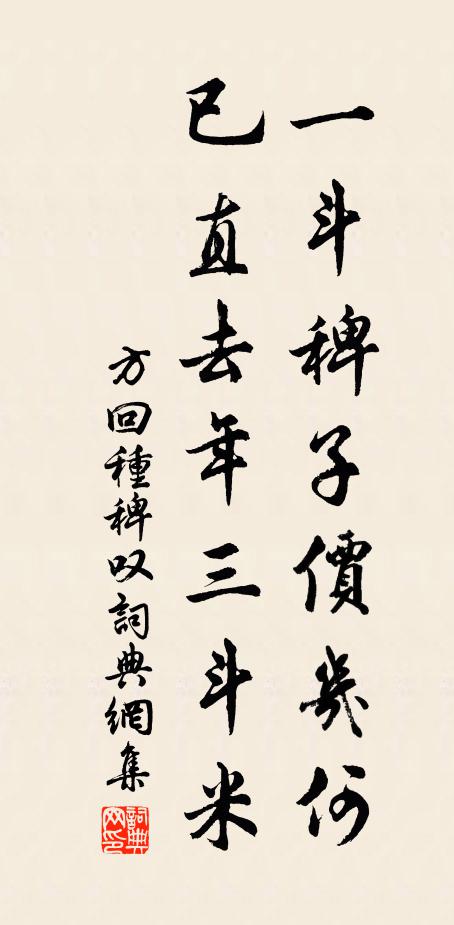 一斗稗子價幾何
已直去年三斗米
方回種稗叹詞典網集
詞典網印